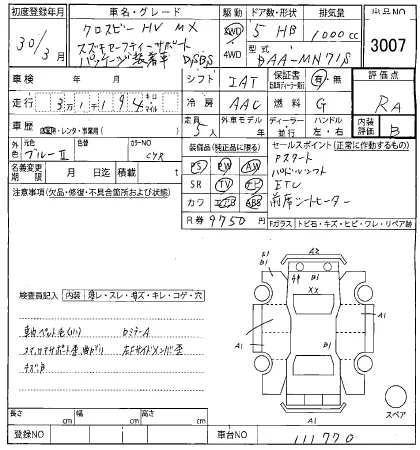 初度登録年月 車名・グレード 駆動 ドア数・形状 排気量 出品NO
30/3月 クロスビー HV MX 2WD 5 HB 1000cc 3007
スズキセーフティーサポート 4WD 型式
パッケージ装着車 DSBS DAA-MN71S
車検 年 月 シフト IAT 保証書 有・無 評価点
走行 3万1千194 キロ マイル 冷房 AAC 燃料 G RA
車歴 自家用・レンタ・事業用( ) 定員 5人 外車モデル 年 ディーラー 並行 ハンドル 左・右 内装評価 B
外色 元色 ブルーII 色替 カラーNO CYR
装備品(純正品に限る) セールスポイント(正常に作動するもの)
名義変更期限 月 日迄 積載量 t
PS PW AW Pスタート
SR TV ナビ パドルシフト
カワ エアB ABS ETC
R券 9750円 前席シートヒーター
注意事項(欠品・修復・不具合箇所および状態)
Fガラス トビ石・キズ・ヒビ・ワレ・リペア跡
検査員記入 内装 汚レ・スレ・キズ・キレ・コゲ・穴
車内ペット毛(小) ロミラーA
キズ有
A2
A1 B1
B1
XX
A1
B1
A1
A1
スペア
長さ cm 幅 cm 高さ cm
登録NO 車台NO 111770